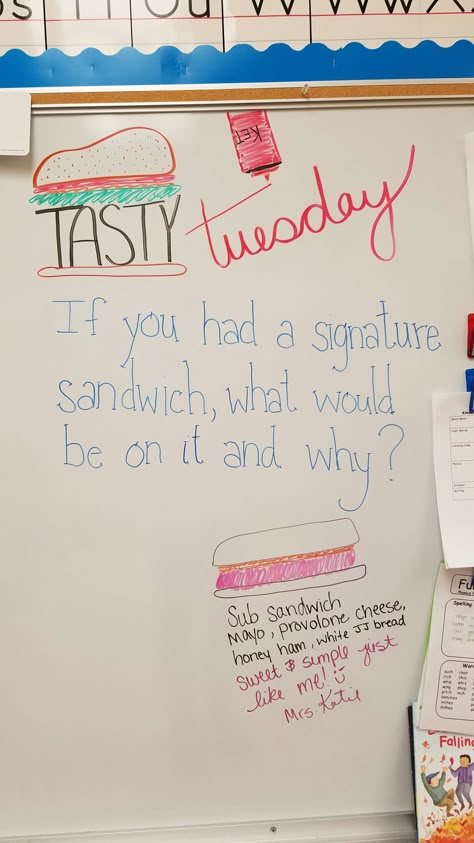 KET
TASTY
Tuesday
If you had a signature
sandwich, what would
be on it and why?
Sub Sandwich
Mayo, provolone cheese,
honey ham, white JJ bread
Sweet & simple just
like me!
Mrs. Katie
Fu
Spelling
Falling